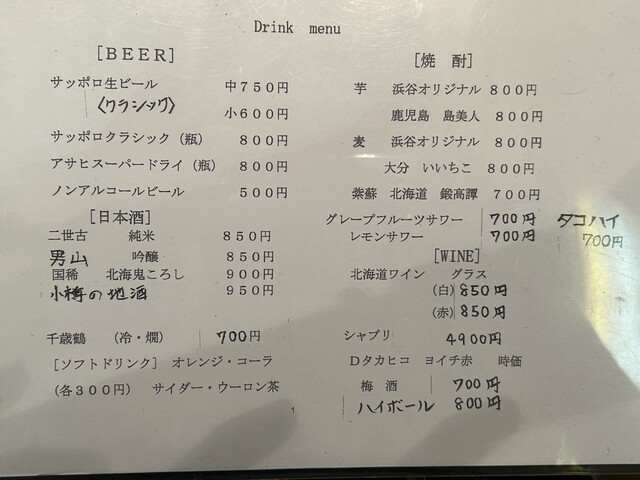 Drink menu
[BEER]
サッポロ生ビール 中750円
〈クラシック〉 小600円
サッポロクラシック(瓶) 800円
アサヒスーパードライ(瓶) 800円
ノンアルコールビール 500円
[日本酒]
二世古 純米 850円
男山 吟醸 850円
国稀 北海鬼ころし 900円
小樽の地酒 950円
千歳鶴 (冷・燗) 700円
[ソフトドリンク] オレンジ・コーラ
(各300円) サイダー・ウーロン茶
[焼 酎]
芋 浜谷オリジナル 800円
鹿児島 島美人 800円
麦 浜谷オリジナル 800円
大分 いいちこ 800円
紫蘇 北海道 鍛高譚 700円
グレープフルーツサワー 700円 タコハイ
レモンサワー 700円 700円
[WINE]
北海道ワイン グラス
(白) 850円
(赤) 850円
シャブリ 4900円
Dタカヒコ ヨイチ赤 時価
梅 酒 700円
ハイボール 800円